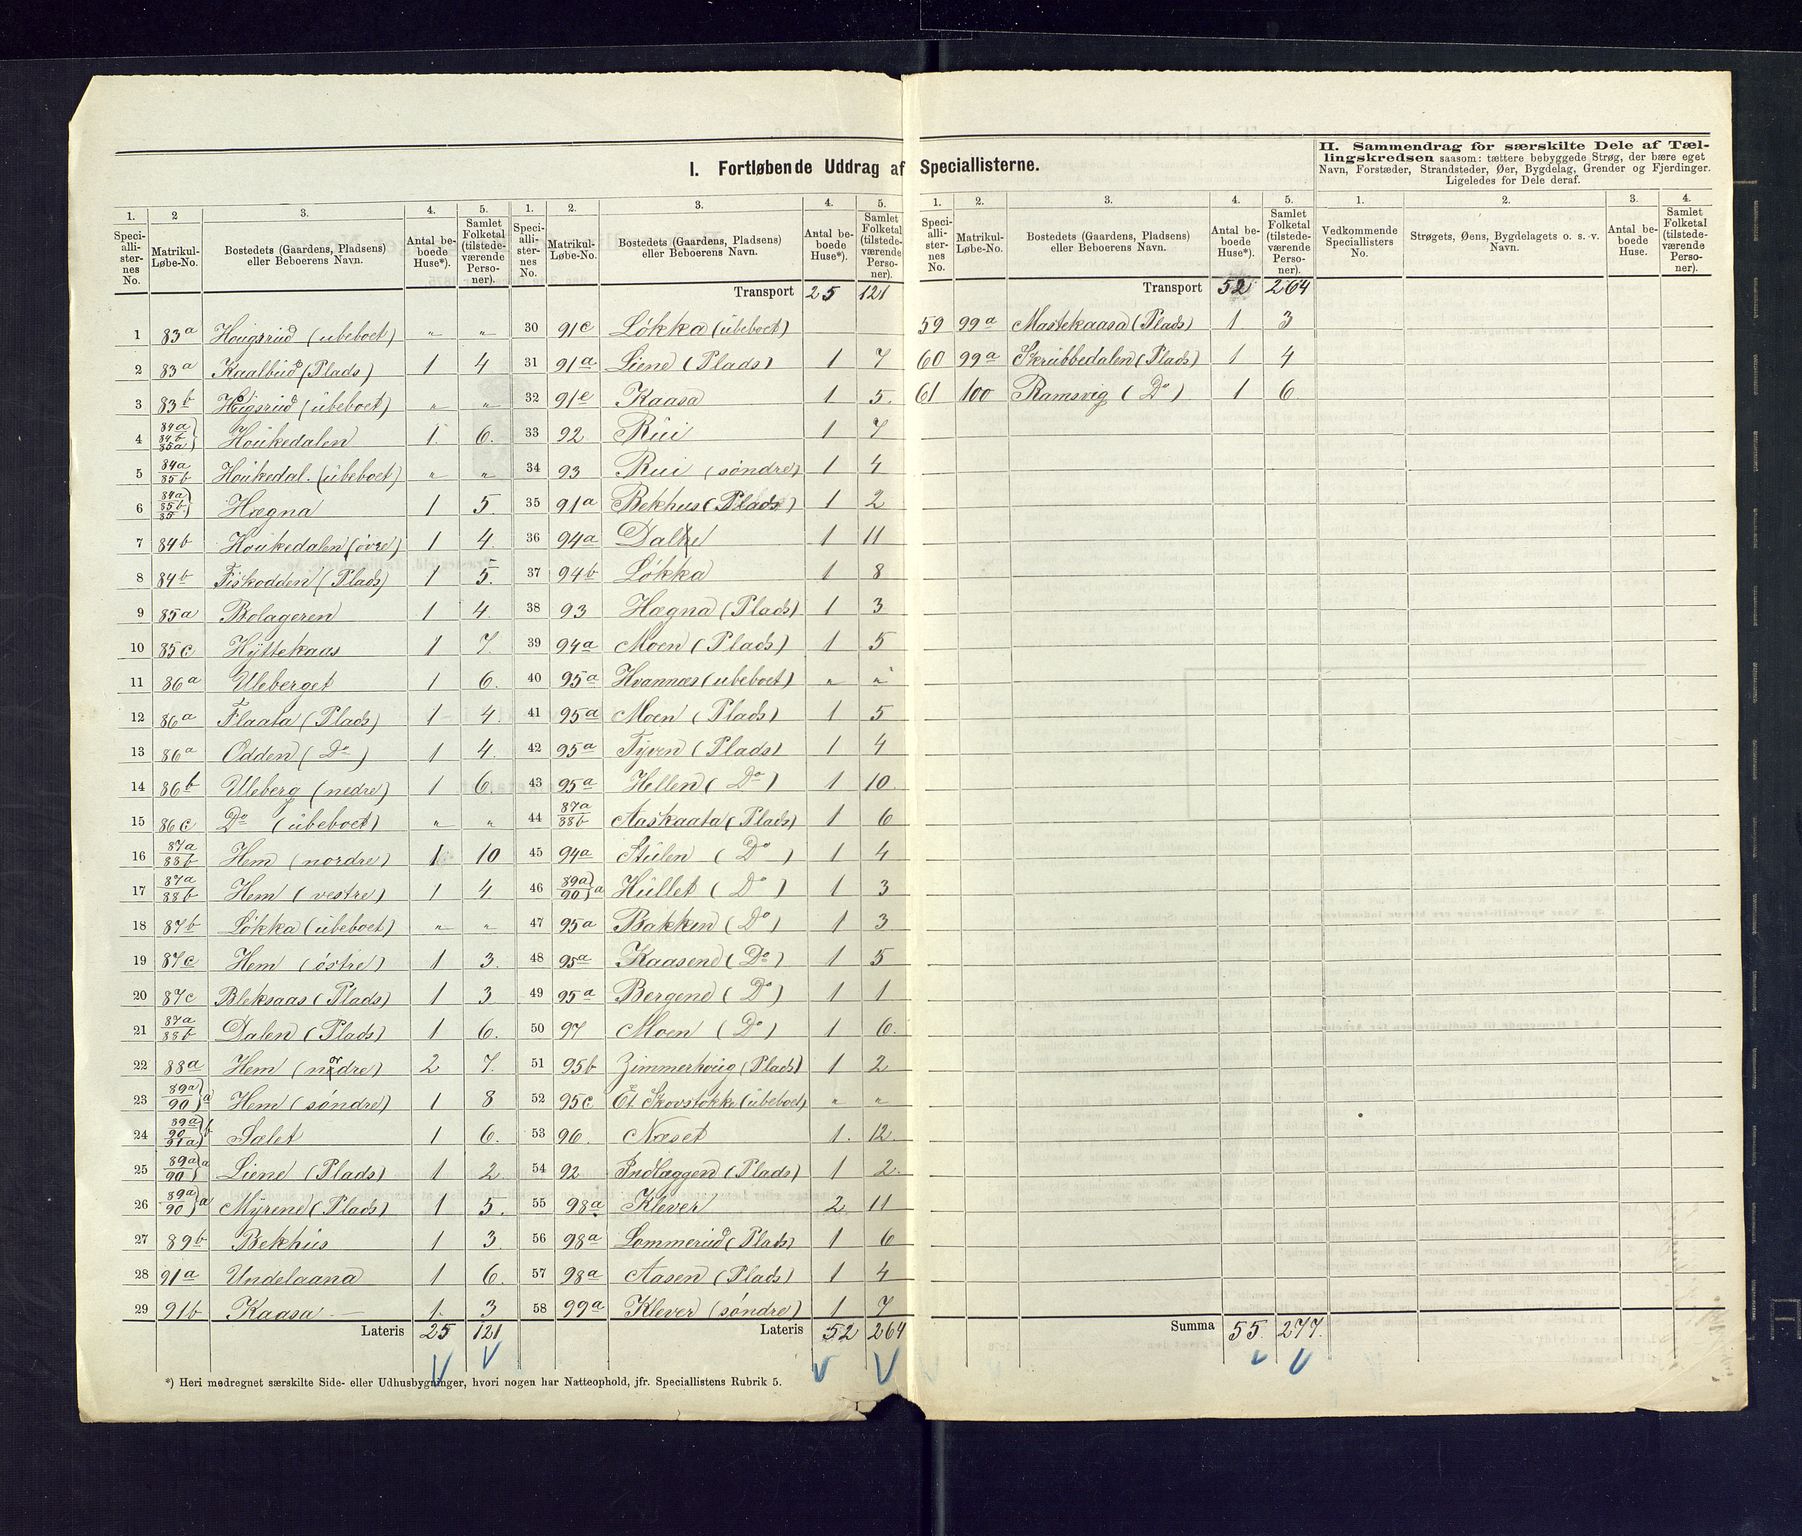 I. Fortløbende Uddrag af Speciallisterne.
II. Sammendrag for særskilte Dele af Tæl-
lingskredsen saasom: tættere bebyggede Strøg, der bære eget
Navn, Forstæder, Strandsteder, Øer, Bygdelag, Grender og Fjerdinger.
Ligeledes for Dele deraf.
1. 2 3. 4. 5.
Speciallisternes No. Matrikul-Løbe-No. Bostedets (Gaardens, Pladsens) eller Beboerens Navn. Antal beboede Huse*). Samlet Folketal (tilstedeværende Personer).
1 83a Hougsrud (ubeboet) „ „
2 83a Kaalbud (Plads) 1 4
3 83b Hougsrud (ubeboet) „ „
4 84a 84b 85a Houkedalen 1. 6.
5 84a 85b Houkedal. (ubeboet) „ „
6 84a 85b 85 Hægna 1 5.
7 84b Houkedalen (øvre) 1 4.
8 84b Fiskodden (Plads) 1 5.
9 85a Bolageren 1 4.
10 85c Hyttekaas 1 7.
11 86a Uleberget 1 6.
12 86a Flaata (Plads) 1 4.
13 86a Odden (Do) 1 4.
14 86b Uleberg (nedre) 1 6.
15 86c Do (ubeboet) „ „
16 87a 88b Hem (nordre) 1 10
17 87a 88b Hem (vestre) 1 4.
18 87b Løkka (ubeboet) „ „
19 87c Hem (østre) 1 3.
20 87c Bleksaas (Plads) 1 3
21 87a 88b Dalen (Plads) 1 6.
22 88a Hem (nordre) 2 7.
23 89a 90 a Hem (søndre) 1 8
24 89a 90 91a b Sælet 1 6.
25 89a 90 a Liene (Plads) 1 2.
26 89a 90 a Myrene (Plads) 1 5.
27 89b Bekhus 1 3.
28 91a Undelaana 1 6.
29 91b Kaasa 1. 3
Lateris 25 121
1. 2. 3. 4. 5.
Speciallisternes No. Matrikul-Løbe-No. Bostedets (Gaardens, Pladsens) eller Beboerens Navn. Antal beboede Huse*). Samlet Folketal (tilstedeværende Personer).
Transport 25 121
30 91c Løkka (ubeboet)
31 91a Liene (Plads) 1 7
32 91e Kaasa 1 5.
33 92 Rui 1 7
34 93 Rui (søndre) 1 4
35 91a Bekhus (Plads) 1 2
36 94a Dalne 1 11
37 94b Løkka 1 8
38 93 Hægna (Plads) 1 3
39 94a Moen (Plads) 1 5
40 95a Hvannæs (ubeboet) „ „
41 95a Moen (Plads) 1 5
42 95a Tyven (Plads) 1 4
43 95a Hellen (Do) 1 10
44 87a 88b Aaskaata (Plads) 1 6
45 94a Stulen (Do) 1 4
46 89a 90 a Hullet (Do) 1 3
47 95a Bakken (Do) 1 3
48 95a Kaasene (Do) 1 5
49 95a Bergene (Do) 1 1
50 97 Moen (Do) 1 6.
51 95b Zimmerhoug (Plads) 1 2
52 95c Et Skovstøkke (ubeboet) „ „
53 96. Næset 1. 12.
54 92 Indlæggen (Plads) 1 2.
55 98a Klever 2. 11
56 98a Lommerud (Plads) 1 6
57 98a Aasen (Plads) 1 4
58 99a Klever (søndre) 1 7
Lateris 52 264
*) Heri medregnet særskilte Side- eller Udhusbygninger, hvori nogen har Natteophold, jfr. Speciallistens Rubrik 5.
1. 2. 3. 4. 5.
Speciallisternes No. Matrikul-Løbe-No. Bostedets (Gaardens, Pladsens) eller Beboerens Navn. Antal beboede Huse*). Samlet Folketal (tilstedeværende Personer).
Transport 52 264
59 99a Mastekaasa (Plads) 1 3
60 99a Skrubbedalen (Plads) 1 4
61 100 Ramsvig (Do) 1 6
Summa 55. 277.
1. 2. 3. 4.
Vedkommende Speciallisters No. Strøgets, Øens, Bygdelagets o. s. v. Navn. Antal beboede Huse. Samlet Folketal (tilstedeværende Personer).